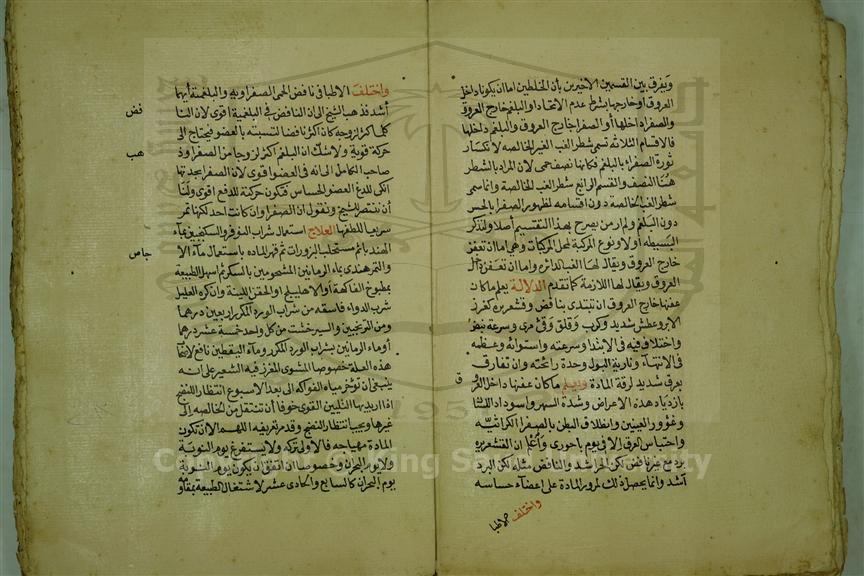 ويفرق بين القسمين الاخيرين بان الخلطين اما ان يكونا داخل
العروق او خارجها بشرط عدم الاتحاد او البلغم خارج العروق
والصفراء داخلها او الصفرا خارج العروق والبلغم داخلها
فالاقسام الثلاثة تسمى شطر الغب الغير الخالصة لانكسار
ثورة الصفراء بالبلغم فكانها نصف حمى لان المراد بالشطر
هنا النصف والقسم الرابع شطر الغب الخالصة وانما سمى
شطر الغب الخالصة دون اقسامه لظهور الصفرا بالحس
دون البلغم ولم ار من يصرح بهذا التقسيم اصلا ولنذكر
البسيطة اولا ونوع المركبة لمحل المركبات وهى اما ان تعفن
خارج العروق ويقال لها الغب الدائرة واما ان تعفن داخل
العروق ويقال لها اللازمة كما تقدم الدلالة يعلم ما كان
عفنها خارج العروق ان تبتدى بنافض وقشعريرة كغرز
الابر وعطش شديد وكرب وقلق وقئ مرى وسرعة نبض
واختلاف فيه فى الابتدا وسرعته واستوائه وعظمه
فى الانتهاء ونارية البول وحدة رائحته وان تفارق
بعرق شديد لرقة المادة ويعلم ما كان عفنها داخل العروق
بازدياد هذه الاعراض وشدة السهر واسوداد اللسان
وغؤور العينين وانطلاق البطن بالصفرا الكراثية
واحتباس العرق الا فى يوم باحورى واعلم ان القشعريرة
برد مع غير نافض كنخز الحراشد والنافض مثله لكن البرد
اشد وانما يحصل ذلك لمرور المادة على اعضاء حساسه
واختلف الاطبا
واختلف الاطبا فى نافض الحمى الصفراويه والبلغمية ايهما
اشد فذهب الشيخ الى ان النافض فى البلغمية اقوى لان المادة
فض
كلما كثر لزوجه كان اكثر نافضا لتشبثه بالعضو فيحتاج الى
حركة قوية ولا شك ان البلغم اكثر لزوجا من الصفرا وذهب
هب
صاحب الكامل الى انه فى الصفرا اقوى لان الصفرا بحدتها
انكى للذع العضو الحساس فتكون حركته للدفع اقوى ولنا
ان ننتصر للشيخ ونقول ان الصفرا وان كانت احد لكنها تمر
سريعا للطفها العلاج استعمال شراب النوفر والسكنجبين بماء
الهندبا ثم مستحلب البزورات ثم قهر المادة باستعمال ماء الاجاص
جاص
والتمر هندى بماء الرمانين المشحومين بالسكر ثم اسهل الطبيعة
بمطبوخ الفاكهة او الاهليلج او الحقن اللينة وان كره العليل
شرب الدواء فاسقه من شراب الورد المكرر اربعين درهما
ومن الترنجبين والسيرخشت من كل واحد خمسة عشر درهما
او ماء الرمانين بشراب الورد المكرر وماء اليقطين نافع لاصحاب
هذه العلة خصوصا المشوى المغرز فيه الشعير على انه
ينبغى ان تؤخر مياه الفواكه الى بعد الاسبوع انتظار اللنضج
اذا اريد بها التليين القوى خوفا ان تنتقل من الخالصة الى
غيرها ويجب انتظار النضج وقد مر تعريفه اللهم الا ان تكون
المادة مهياجه فالاولى تركه ولا يستفرغ يوم النوبة
ولا يوم البحران وخصوصا ان اتفق ان يكون يوم النوبة
يوم البحران كالسابع والحادى عشر لاشتغال الطبيعة بمقاومة
ق
1957
Copyright © King Saud University